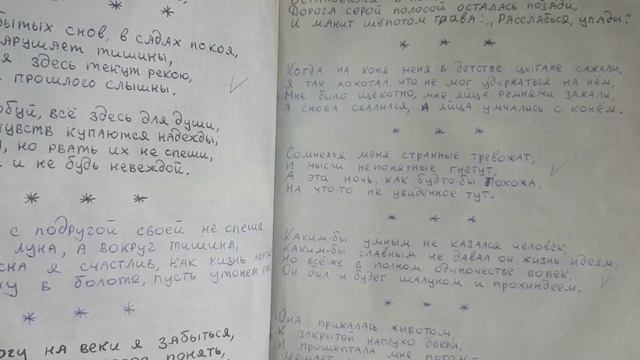 бытых снов, в садах покоя,
арушает тишины,
я здесь текут рекою,
прошлого слышны.
* * *
обуй, всё здесь для души,
чувств купаются надежды,
, но рвать их не спеши,
и не будь невеждой.
* * *
с подругой своей не спеша
луна, а вокруг тишина,
сна я счастлив, как жизнь
ку в болоте, пусть утонет
* * *
огу на веки я забыться,
понять,
Дорога серой полосой осталась позади,
И манит шёпотом трава: „Расслабься, упади."
* * *
Когда на коня меня в детстве цыгане сажали,
Я так хохотал, что не мог удержаться на нём.
Мне было щекотно, мне яйца ремнями зажали,
Я снова свалился, а яйца умчались с конём.
* * *
Сомненья меня странные тревожат,
И мысли непонятные гнетут,
А эта ночь, как будто-бы похожа,
На что-то не увиденное тут.
* * *
Каким-бы умным не казался человек,
Каким-бы славным не давал он жизнь идеям,
Но всё-же в полном одиночестве вовек,
Он был и будет шалуном и прохиндеем.
* * *
Она прижалась животом,
К закрытой наглухо двери,
И прошептала мне